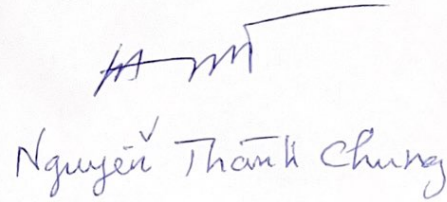 Nguyễn Thành Chung